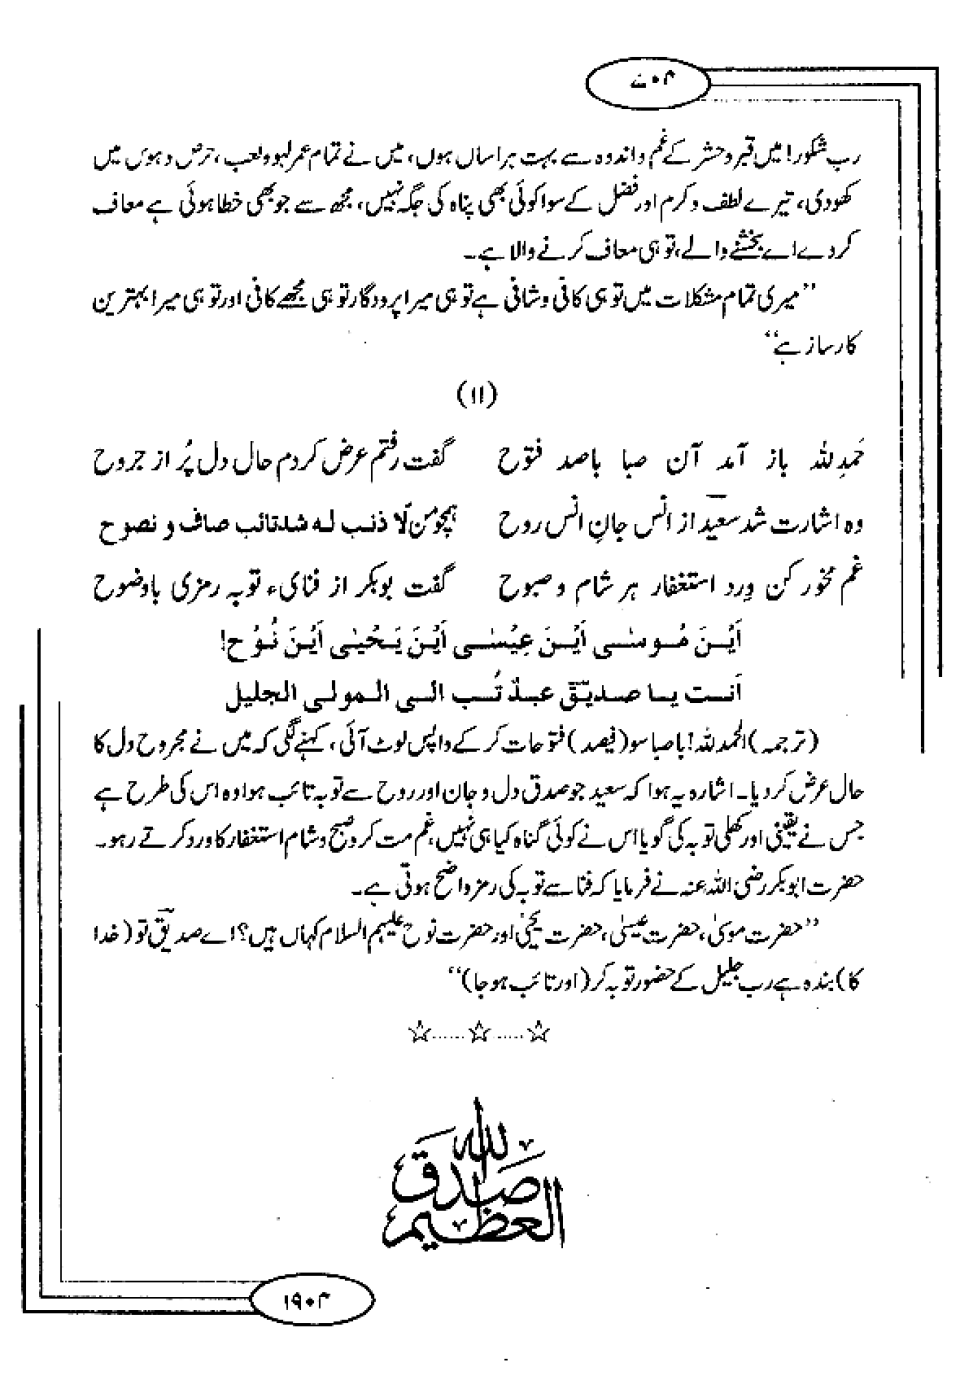 ۷۰۴
رب شکور! میں قبر و حشر کے غم و اندوہ سے بہت ہراساں ہوں، میں نے تمام عمر لہو و لعب، حرص و ہوس میں
کھودی، تیرے لطف و کرم اور فضل کے سوا کوئی بھی پناہ کی جگہ نہیں، مجھ سے جو بھی خطا ہوئی ہے معاف
کر دے اے بخشنے والے، تو ہی معاف کرنے والا ہے۔
”میری تمام مشکلات میں تو ہی کافی و شافی ہے تو ہی میرا پروردگار تو ہی مجھے کافی اور تو ہی میرا بہترین
کارساز ہے“
(۱۱)
حَمدِ للہ باز آمد آن صبا باصد فتوح گفت رفتم عرض کردم حال دل پُر از جروح
وہ اشارت شد سعیدؔ از انس جانِ انس روح ہمچو من لّا ذنب لہ شد تائب صاف و نصوح
غم مخور کن وِرد استغفار ہر شام و صبوح گفت بوبکر از فنای ء توبہ رمزی باوضوح
اَیْنَ مُوسٰی اَیْنَ عِیْسٰی اَیْنَ یَحْیٰی اَیْنَ نُوْح!
اَنت یا صدیقؔ عبدٌ تُب الی المولی الجلیل
(ترجمہ) الحمدللہ! باصبا سو (فیصد) فتوحات کر کے واپس لوٹ آئی، کہنے لگی کہ میں نے مجروح دل کا
حال عرض کر دیا۔ اشارہ یہ ہوا کہ سعید جو صدق دل و جان اور روح سے توبہ تائب ہوا وہ اس کی طرح ہے
جس نے یقینی اور کھلی توبہ کی گویا اس نے کوئی گناہ کیا ہی نہیں، غم مت کرو صبح و شام استغفار کا ورد کرتے رہو۔
حضرت ابوبکر رضی اللہ عنہ نے فرمایا کہ فنا سے توبہ کی رمز واضح ہوتی ہے۔
”حضرت موسیٰ، حضرت عیسیٰ، حضرت یحییٰ اور حضرت نوح علیہم السلام کہاں ہیں؟ اے صدیقؔ تو (خدا
کا) بندہ ہے رب جلیل کے حضور توبہ کر (اور تائب ہو جا)“
☆......☆.....☆
صدق اللہ العظیم
۱۹۰۴